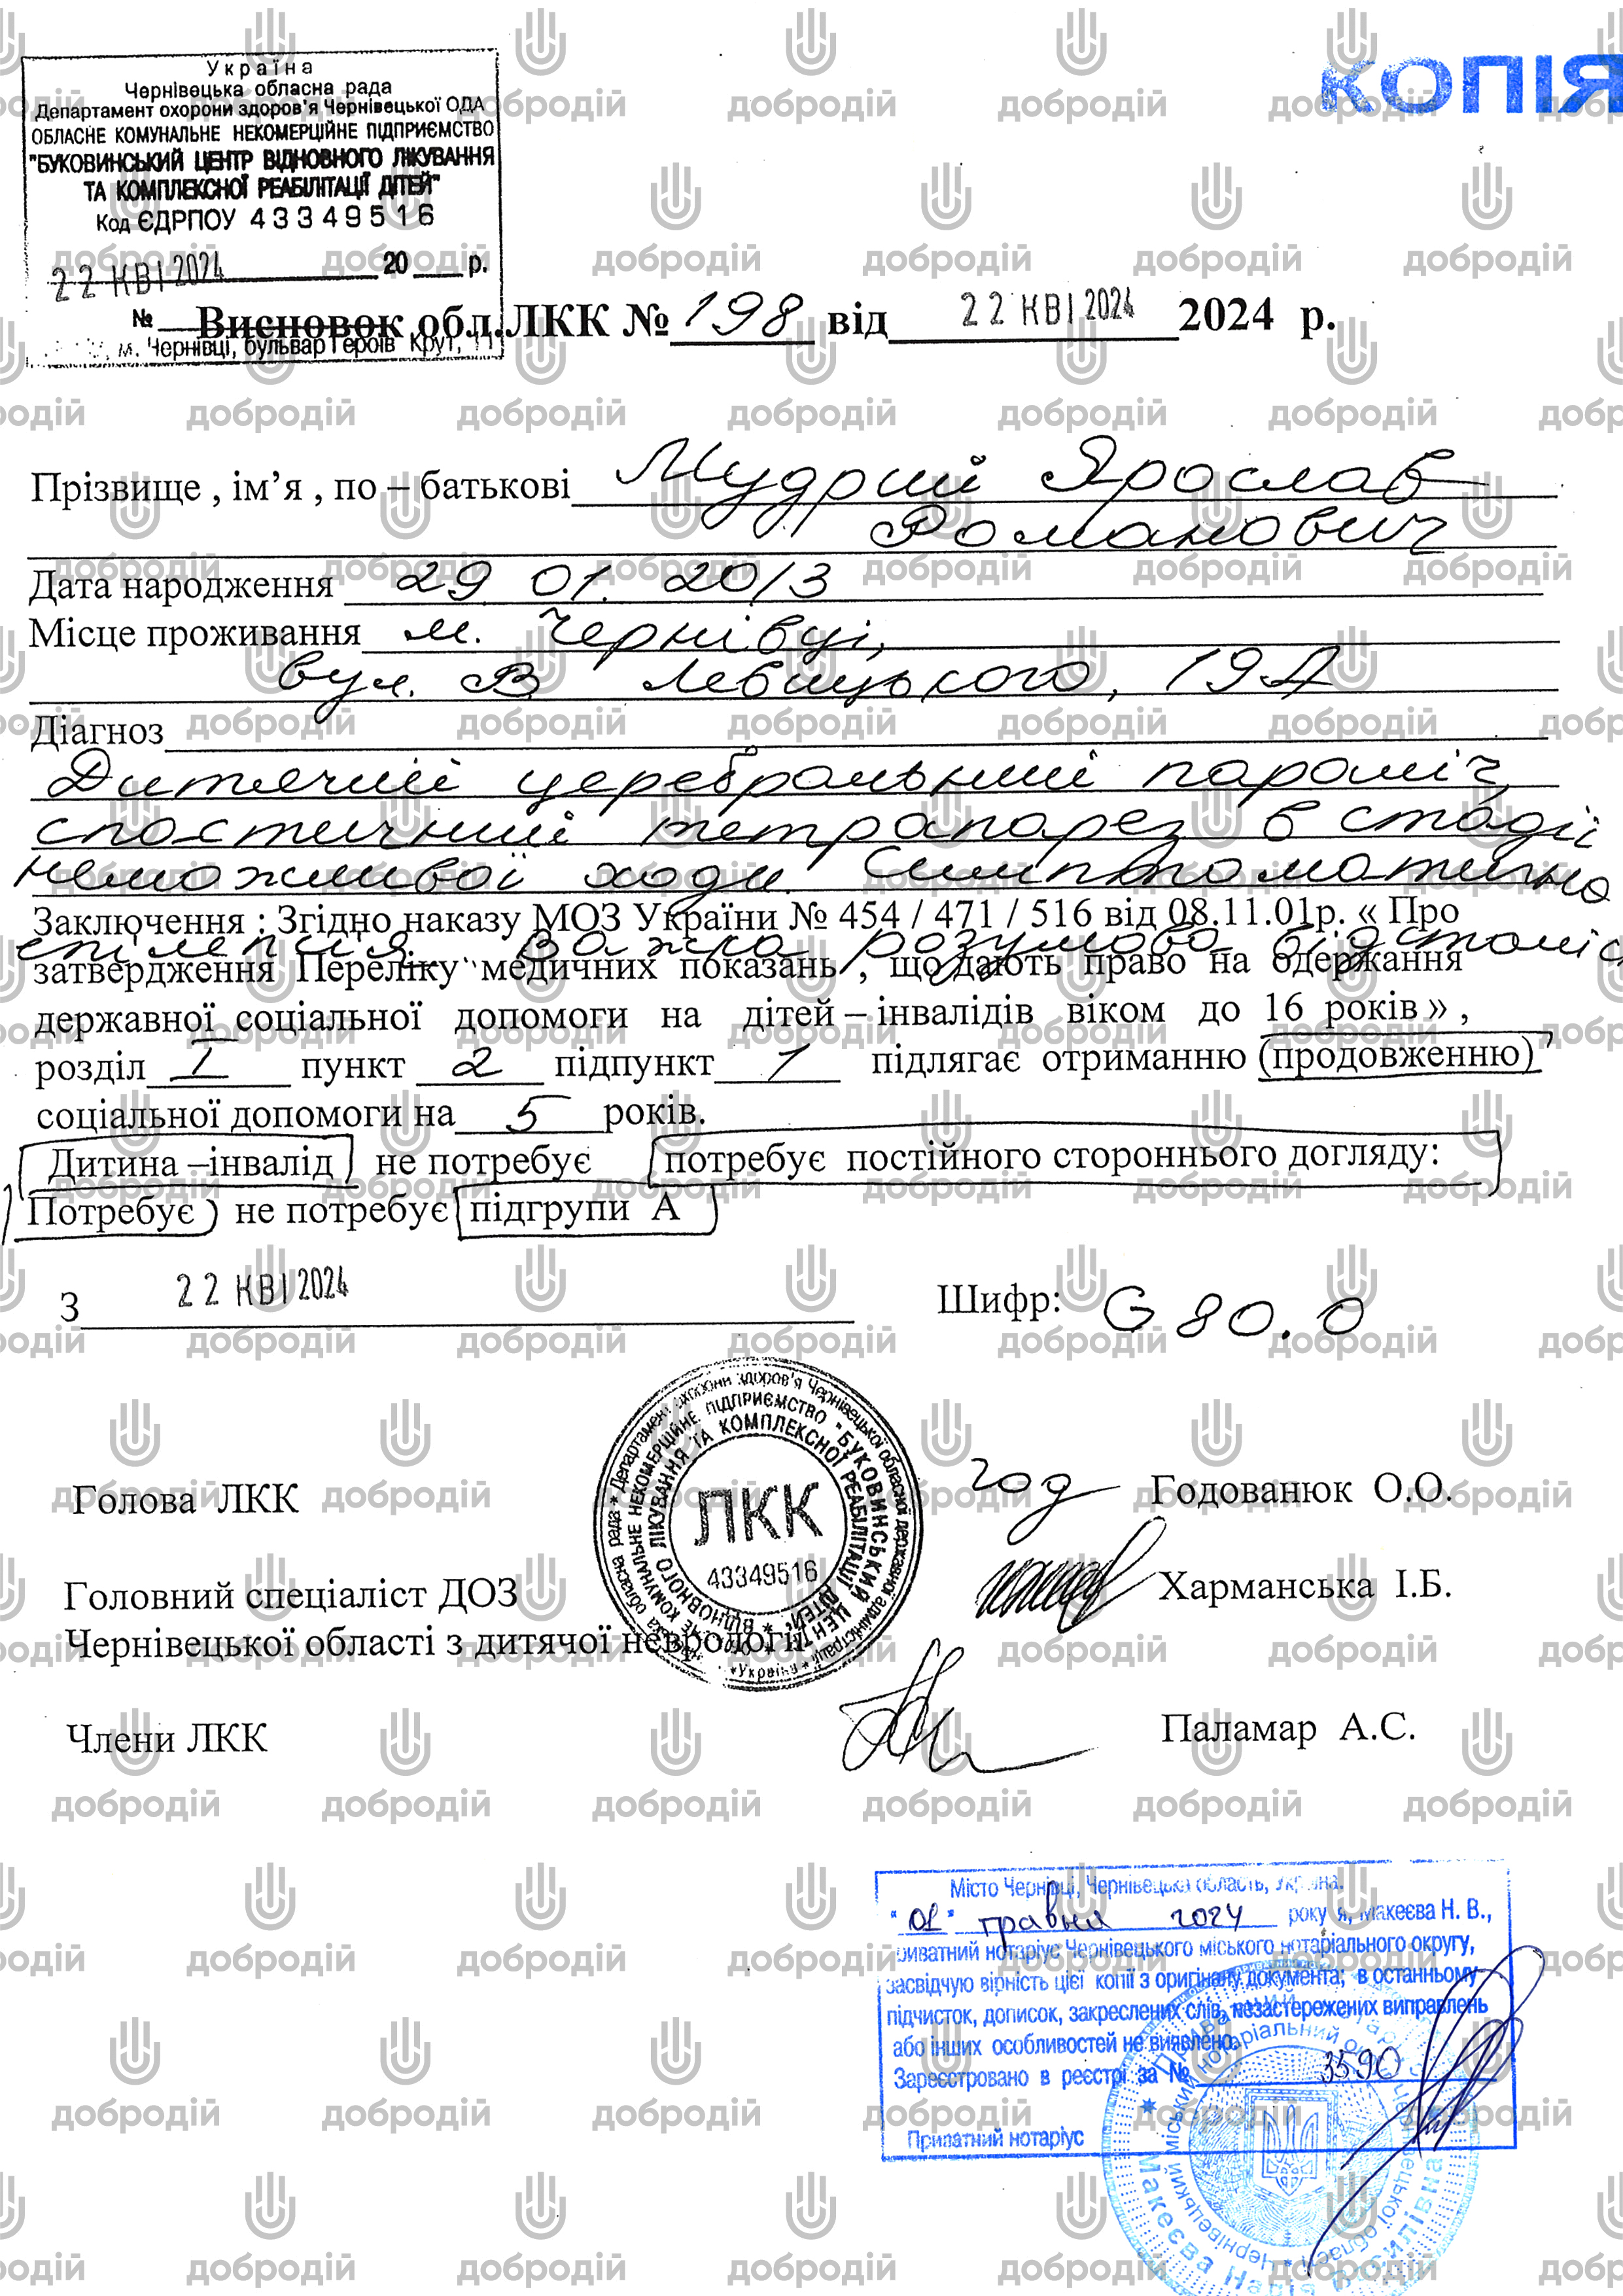 КОПІЯ
Україна
Чернівецька обласна рада
Департамент охорони здоров'я Чернівецької ОДА
ОБЛАСНЕ КОМУНАЛЬНЕ НЕКОМЕРЦІЙНЕ ПІДПРИЄМСТВО
"БУКОВИНСЬКИЙ ЦЕНТР ВІДНОВНОГО ЛІКУВАННЯ
ТА КОМПЛЕКСНОЇ РЕАБІЛІТАЦІЇ ДІТЕЙ"
Код ЄДРПОУ 43349516
22 КВІ 2024 20 р.
№
м. Чернівці, бульвар Героїв Крут, 11
Висновок обл.ЛКК № 198 від 22 КВІ 2024 2024 р.
Прізвище , ім’я , по – батькові Мудрий Ярослав
Романович
Дата народження 29 01. 2013
Місце проживання м. Чернівці,
вул. В. Левицького, 19А
Діагноз
Дитячий церебральний параліч,
спастичний тетрапарез в стадії
неможливої ходи. Симптоматична
Заключення : Згідно наказу МОЗ України № 454 / 471 / 516 від 08.11.01р. « Про
епілепсія. Важка розумова
затвердження Переліку медичних показань , що дають право на одержання
державної соціальної допомоги на дітей – інвалідів віком до 16 років » ,
розділ I пункт 2 підпункт 1 підлягає отриманню (продовженню)
соціальної допомоги на 5 років.
Дитина –інвалід не потребує потребує постійного стороннього догляду:
Потребує не потребує підгрупи А
З 22 КВІ 2024 Шифр: G 80.0
Голова ЛКК Годованюк О.О.
Головний спеціаліст ДОЗ Харманська І.Б.
Чернівецької області з дитячої неврології
Члени ЛКК Паламар А.С.
ЛКК
43349516
Місто Чернівці, Чернівецька область, Україна.
"01" травня 2024 року я, Макеєва Н. В.,
приватний нотаріус Чернівецького міського нотаріального округу,
засвідчую вірність цієї копії з оригіналу документа; в останньому
підчисток, дописок, закреслених слів, незастережених виправлень
або інших особливостей не виявлено.
Зареєстровано в реєстрі за № 3590
Приватний нотаріус
добродій